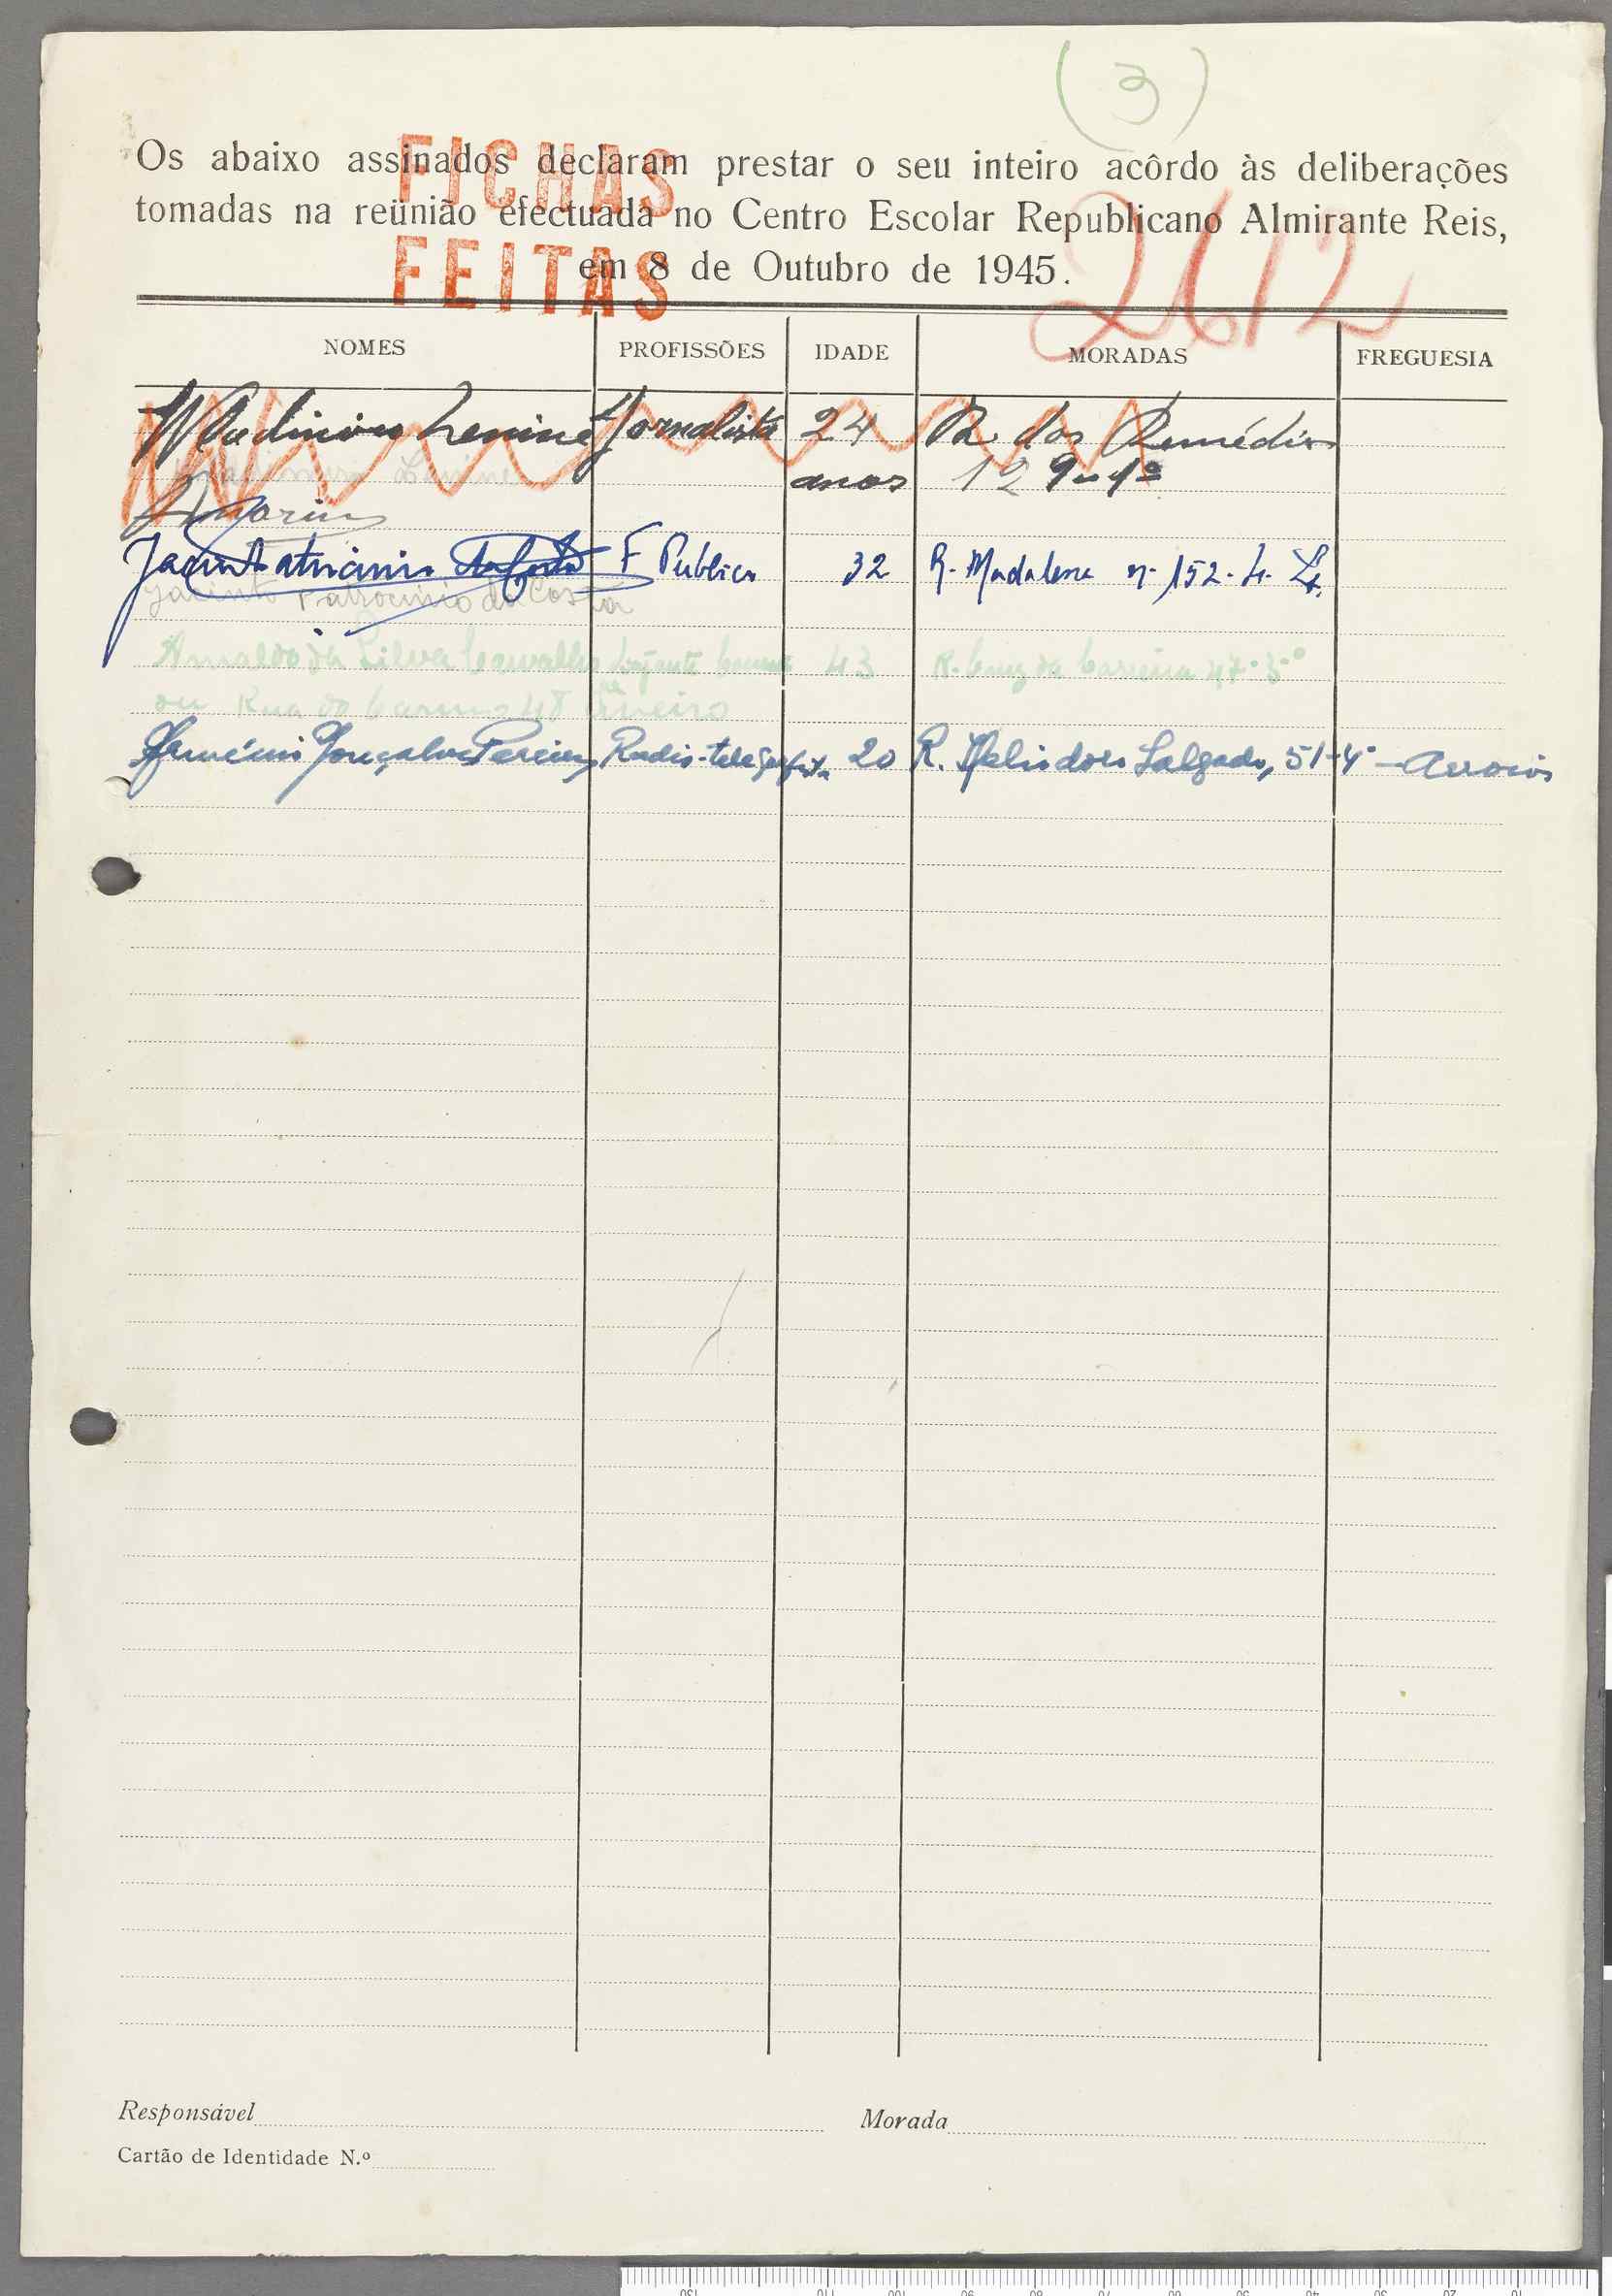 (3)
Os abaixo assinados declaram prestar o seu inteiro acôrdo às deliberações
tomadas na reünião efectuada no Centro Escolar Republicano Almirante Reis,
em 8 de Outubro de 1945.
FICHAS
FEITAS
2612
NOMES PROFISSÕES IDADE MORADAS FREGUESIA
Lenine Jornalista 24 R. dos Remédios
Lenine anos 12
Amorim
F Publico 32 R. Madalena nº 152-4-
Jacinto Patrocinio da Costa
Arnaldo da Silva Carvalho 43 R. Cruz da Carreira 47-3º
ou Rua do Carmo 48
Gonçalves Pereira Radio-telegrafista 20 R. Heliodoro Salgado, 51-4º - Arroios
Responsável Morada
Cartão de Identidade N.º